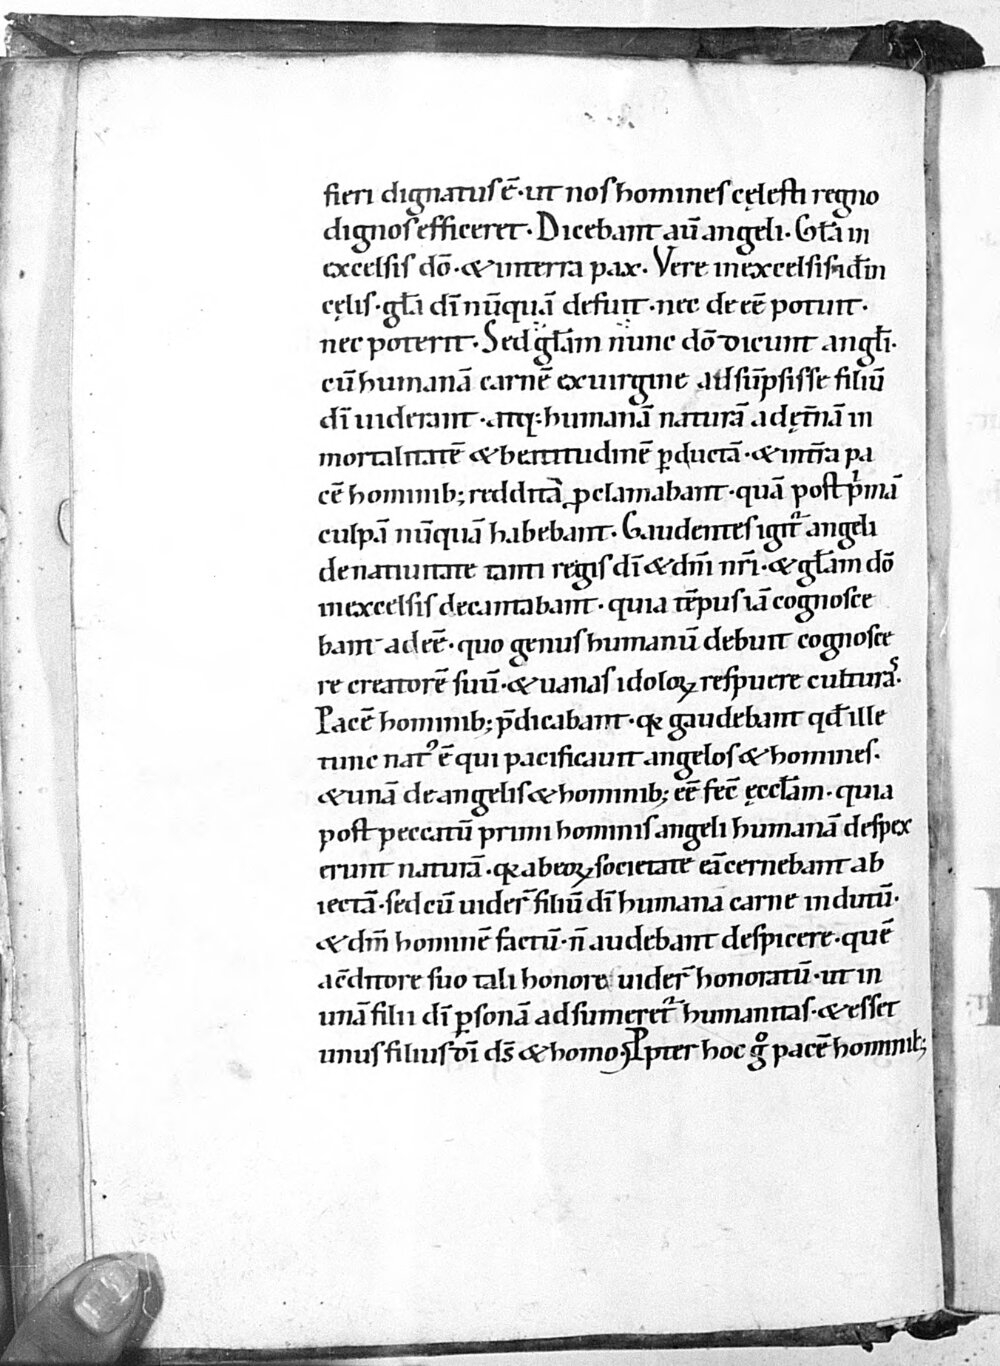 fieri dignatus ē· ut nos homines cęlesti regno
dignos efficeret· Dicebant aū angeli· Gła in
excelsis dō· & in terra pax· Vere in excelsis id ÷ in
cęlis· gła dī nūquā defuit· nec deēē potuit·
nec poterit· Sed głam nunc dō dicunt angłi·
cū humanā carnē ex uirgine adsūpsisse filiū
dī uiderant· atq: humanā naturā ad ęt̄nā in
mortalitatē & beatitudinē ꝑductā· & int̄ra pa
cē hominib; redditā ꝓclamabant· quā post pⁱmā
culpā nūquā habebant· Gaudentes igit᷑ angeli
de natiuitate tanti regis dī & dn̄i nr̄i· & głam dō
in excelsis decantabant· quia tēpus iā cognosce
bant adeē· quo genus humanū debuit cognosce
re creatorē suū· & uanas idoloꝝ respuere culturas·
Pacē hominib; p̄dicabant· q gaudebant qđ ille
tunc nat᾽ ē qui pacificauit angelos & homines·
& unā de angelis & hominib; eē fec̄ ęccłam· quia
post peccatū primi hominis angeli humanā despex
erunt naturā· q ab eoꝝ societate eā cernebant ab
iectā· sed cū uider̄ filiū dī humana carne indutū·
& dn̄i hominē factū· n̄ audebant despicere· quē
a c̄ditore suo tali honore uider̄ honoratū· ut in
unā filii dī ꝑsonā adsumeret᷑ humanitas· & esset
unus filius dī ds̄ & homo; Ppter hoc gº pacē hominib;